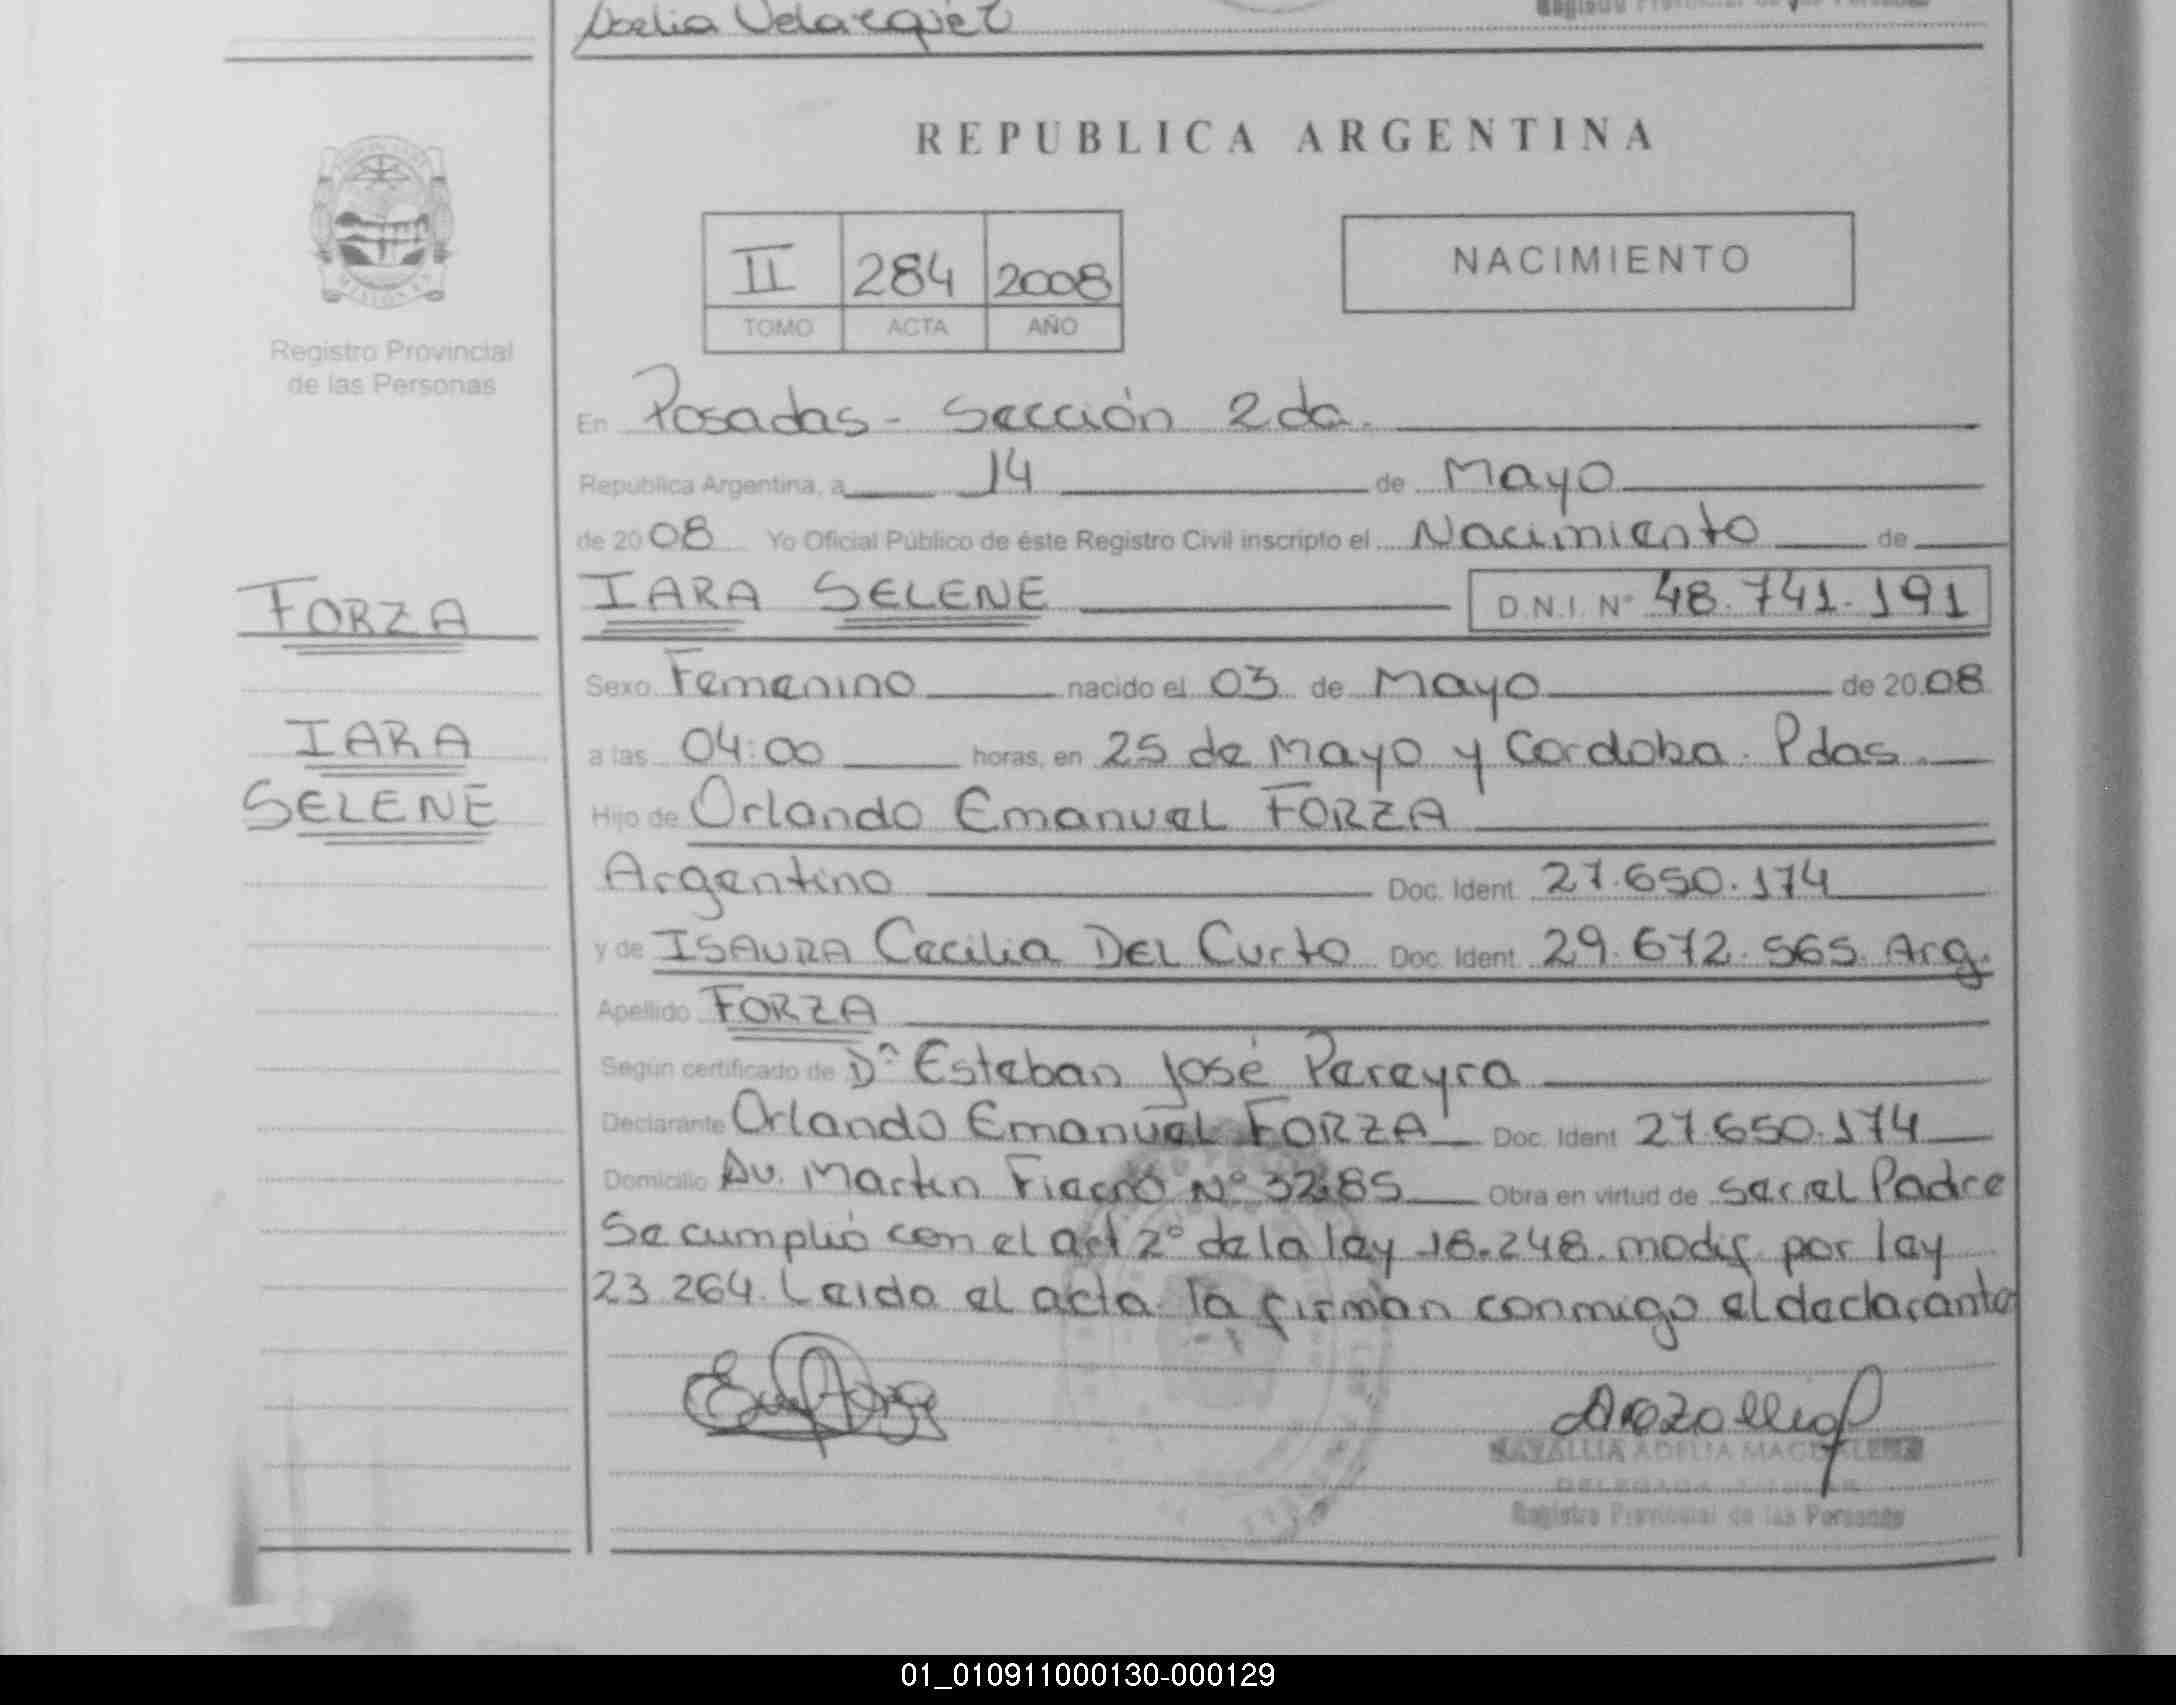 Velazquez
REPUBLICA ARGENTINA
II 284 2008
TOMO ACTA AÑO
NACIMIENTO
Registro Provincial
de las Personas
En Posadas - Sección 2da.
Republica Argentina, a 14 de Mayo
de 2008 Yo Oficial Público de éste Registro Civil inscripto el Nacimiento de
FORZA
IARA
SELENE
IARA SELENE D.N.I. Nº 48.741.191
Sexo Femenino nacido el 03 de Mayo de 2008
a las 04:00 horas, en 25 de Mayo y Cordoba. Pdas.
Hijo de Orlando Emanuel FORZA
Argentino Doc. Ident. 27.650.174
y de ISAURA Cecilia DEL Curto Doc. Ident. 29.672.565. Arg.
Apellido FORZA
Según certificado de Dn Esteban José Pereyra
Declarante Orlando Emanuel FORZA Doc. Ident 27.650.174
Domicilio Av. Martin Fierro Nº 3285 Obra en virtud de ser el Padre
Se cumplió con el art 2º de la ley 18.248. modif por ley
23 264. Leido el acta la firman conmigo el declarante
ADELIA
Registro Provincial de las Personas
01_010911000130-000129